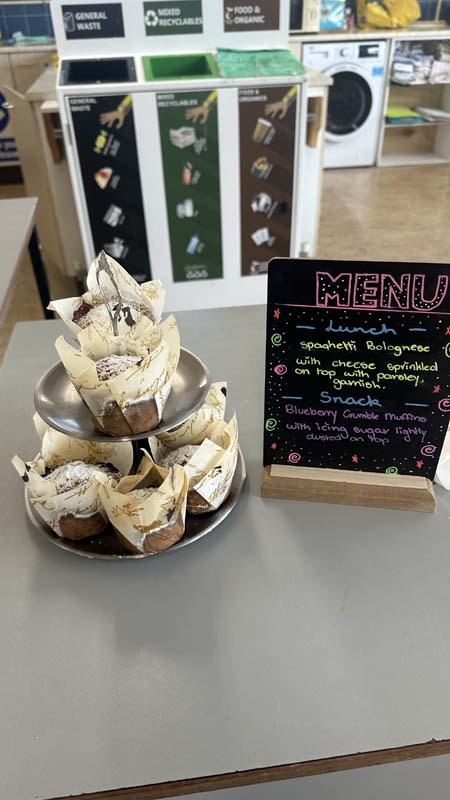 GENERAL
WASTE
MIXED
RECYCLABLES
FOOD &
ORGANIC
GENERAL
WASTE
MIXED
RECYCLABLES
FOOD &
ORGANIC
MENU
Lunch
Spaghetti Bolognese
with cheese sprinkled
on top with parsley
garnish.
Snack
Blueberry Crumble Muffins
with icing sugar lightly
dusted on top